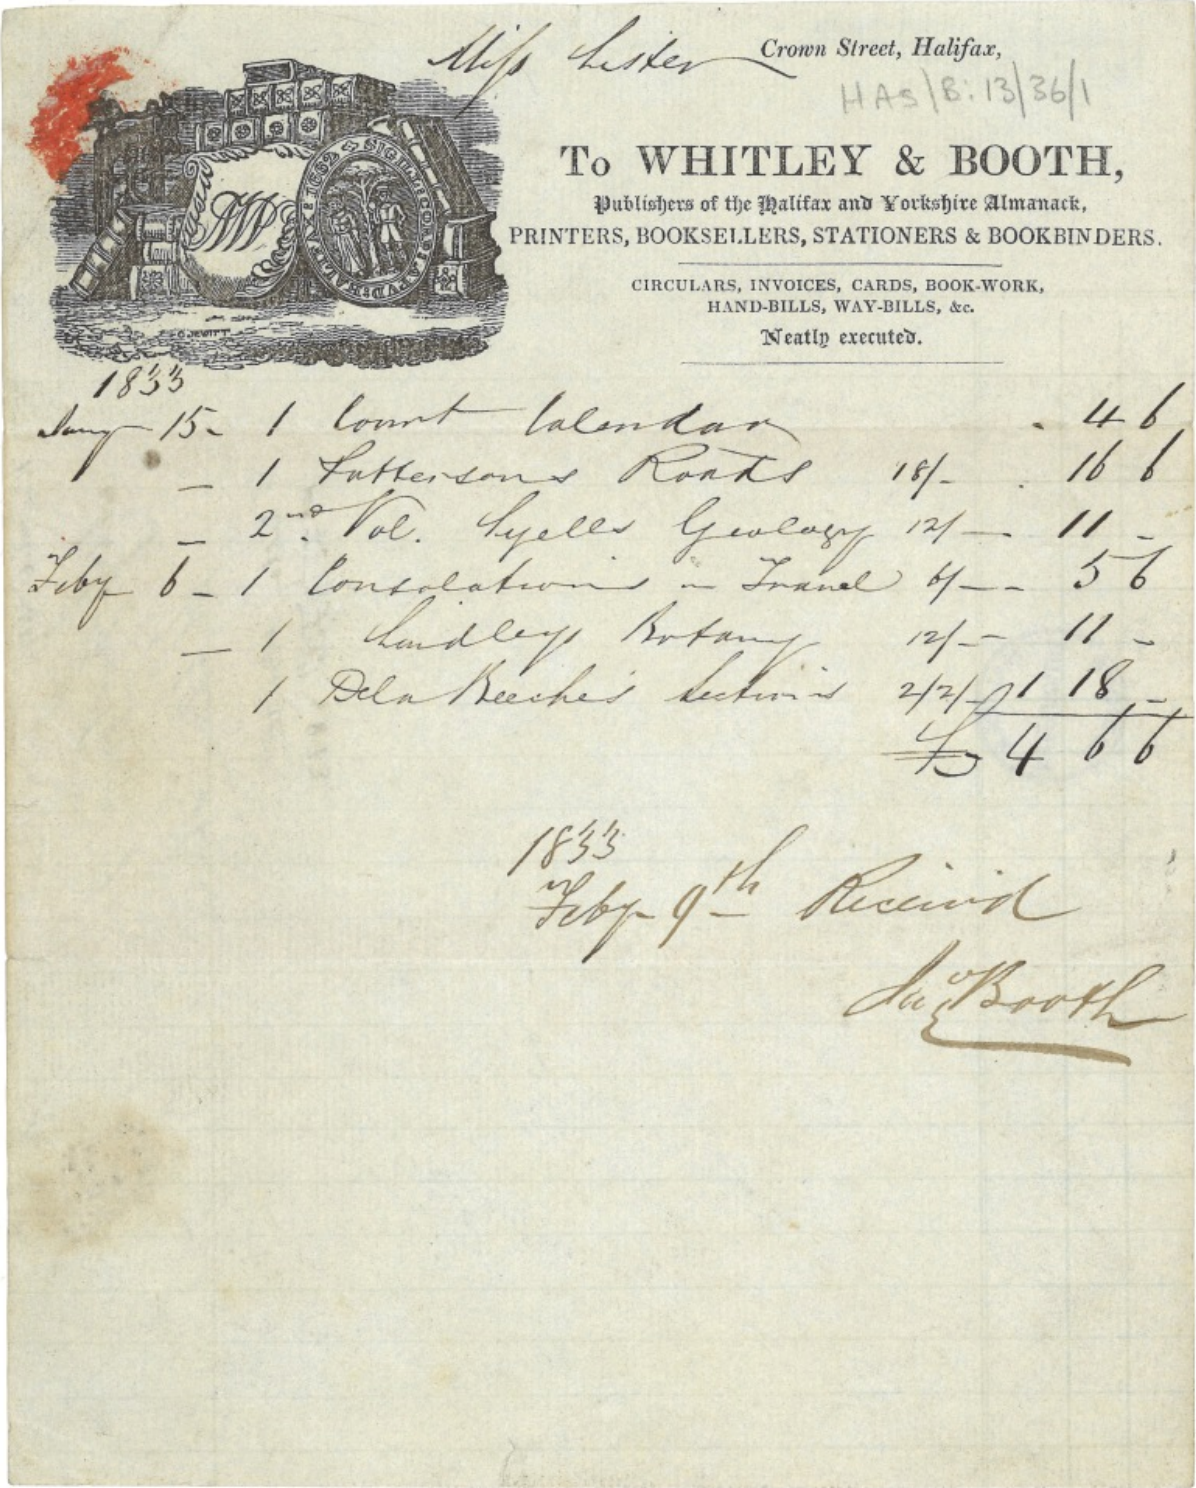 Miss Lister Crown Street, Halifax,
HAS/B:13/36/1
To WHITLEY & BOOTH,
Publishers of the Halifax and Yorkshire Almanack,
PRINTERS, BOOKSELLERS, STATIONERS & BOOKBINDERS.
CIRCULARS, INVOICES, CARDS, BOOK-WORK,
HAND-BILLS, WAY-BILLS, &c.
Neatly executed.
O. JEWITT
1833
Jany 15 - 1 Court Calendar . 4 6
- 1 Pattersons Roads 18/- . 16 6
- 2nd. Vol. Lyells Geology 12/- - 11 -
Feby 6 - 1 Consolations in Travel 6/- - 5 6
- 1 Lindleys Botany 12/- - 11 -
1 De la Beeche's Sections 2/2/- 1 18 -
£ 4 6 6
1833
Feby 9th Received
Jno Booth